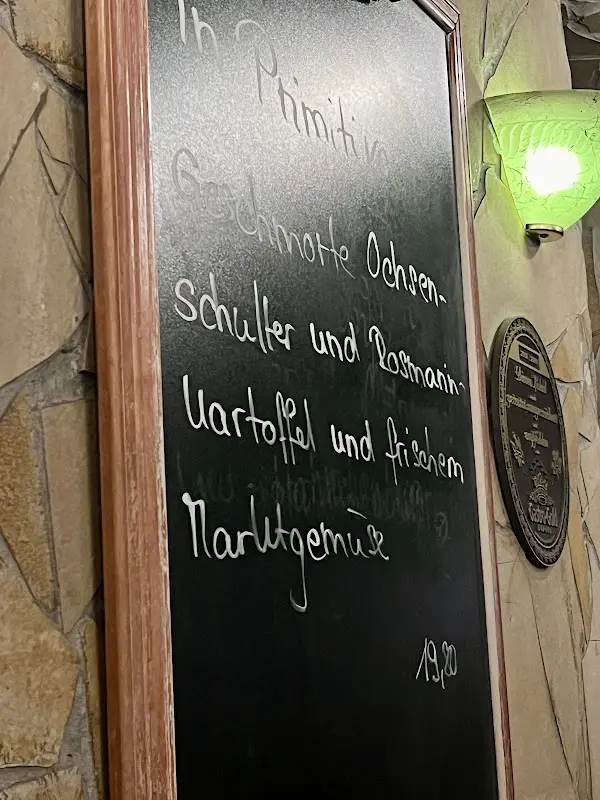 In Primitivo
Geschmorte Ochsen-
schulter und Rosmarin-
Kartoffel und frischem
Marktgemüse
19,80